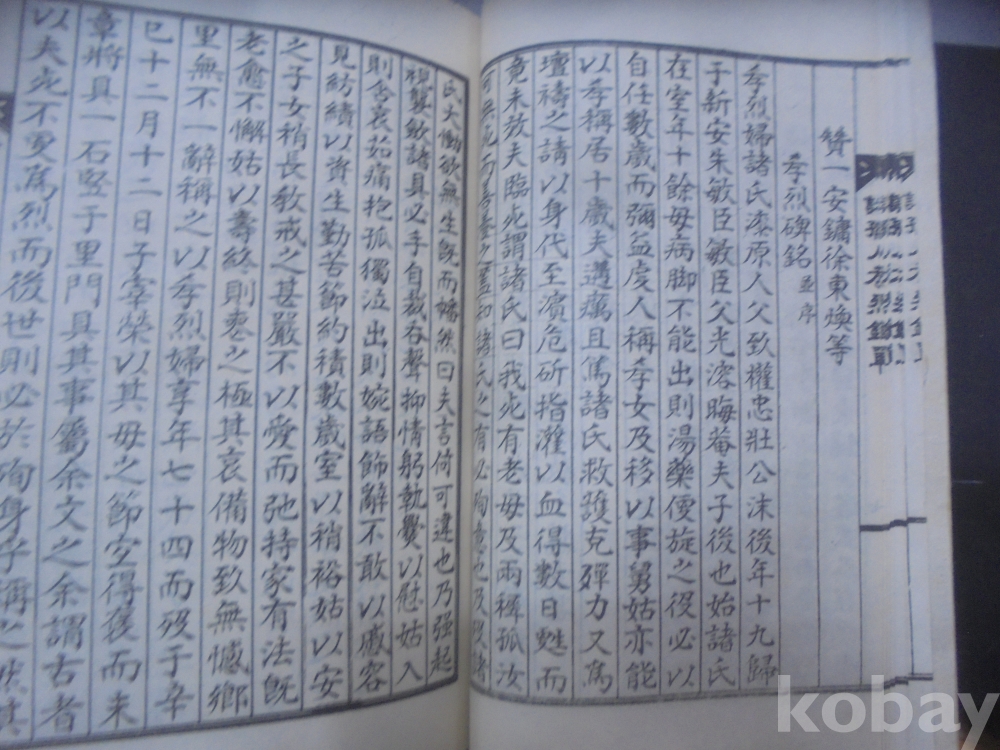 贊一安鏞徐東煥等
孝烈碑銘 並序
孝烈婦諸氏漆原人父致權忠壯公沫後年十九歸
于新安朱敏臣敏臣父光濬晦菴夫子後也始諸氏
在室年十餘母病脚不能出則湯藥便旋之役必以
自任數歲而彌益虔人稱孝女及移以事舅姑亦能
以孝稱居十歲夫遘癘且篤諸氏救護克殫力又為
壇禱之請以身代至濱危斫指灌以血得數日甦而
竟未效夫臨死謂諸氏曰我死有老母及兩穉孤汝
可無死而善養 諸氏 有必殉意 及 諸
氏大慟欲無生既而幡然曰夫言何可違也乃强起
視襲斂諸具必手自裁吞聲抑情躬執爨以慰姑入
則含哀茹痛抱孤獨泣出則婉語飾辭不敢以慼容
見紡績以資生勤苦節約積數歲室以稍裕姑以安
之子女稍長敎戒之甚嚴不以愛而弛持家有法旣
老愈不懈姑以壽終則喪之極其哀備物致無憾鄉
里無不一辭稱之以孝烈婦享年七十四而歿于辛
巳十二月十二日子宰榮以其母之節宜得褒而未
章將具一石竪于里門具其事屬余文之余謂古者
以夫死不更爲烈而後世則必於殉身乎稱之 其
kobay